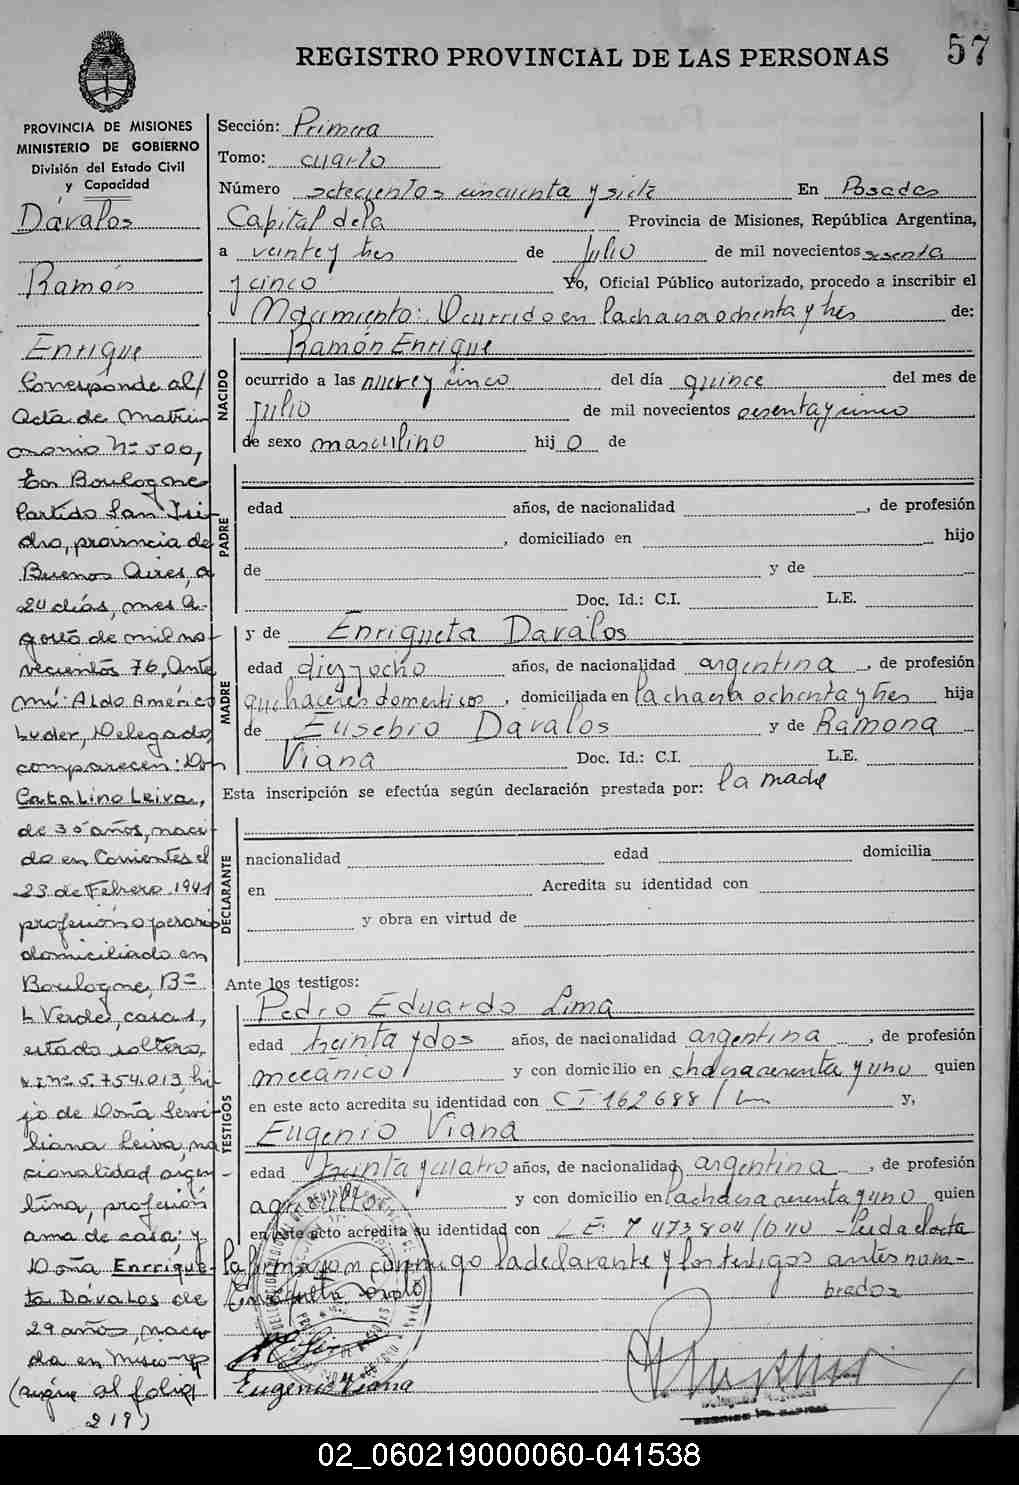 REGISTRO PROVINCIAL DE LAS PERSONAS
57
PROVINCIA DE MISIONES
MINISTERIO DE GOBIERNO
División del Estado Civil
y Capacidad
Dávalos
Ramón
Enrique
Corresponde al
Acta de Matri
monio Nº 500,
En Boulogne
Partido San Isi
dro, provincia de
Buenos Aires, a
24 días, mes A-
gosto de mil no
vecientos 76, Ante
mí: Aldo Américo
Luder, Delegado,
comparecen: Don
Catalino Leiva,
de 35 años, naci-
do en Corrientes el
23 de Febrero 1941
profesión operario
domiciliado en
Boulogne, Bº
L Verde, casa 1,
estado soltero,
5.754.013, hi
jo de Doña Servi
liana Leiva, na
cionalidad argen-
tina, profesión
ama de casa: y
Doña Enrrique
ta Dávalos de
29 años, naci
da en Misiones
(sigue al folio
219)
Sección: Primera
Tomo: cuarto
Número setecientos cincuenta y siete En Posadas
Capital de la Provincia de Misiones, República Argentina,
a veinte y tres de Julio de mil novecientos sesenta
y cinco Yo, Oficial Público autorizado, procedo a inscribir el
Nacimiento: Ocurrido en la chacra ochenta y tres de:
NACIDO
Ramón Enrique
ocurrido a las nueve y cinco del día quince del mes de
Julio de mil novecientos sesenta y cinco
de sexo masculino hijo de
PADRE
edad años, de nacionalidad , de profesión
, domiciliado en hijo
de y de
Doc. Id.: C.I. L.E.
MADRE
y de Enriqueta Davalos
edad diez y ocho años, de nacionalidad argentina , de profesión
quehaceres domesticos , domiciliada en la chacra ochenta y tres hija
de Eusebio Davalos y de Ramona
Viana Doc. Id.: C.I. L.E.
Esta inscripción se efectúa según declaración prestada por: la madre
DECLARANTE
nacionalidad edad domicilia
en Acredita su identidad con
y obra en virtud de
Ante los testigos:
TESTIGOS
Pedro Eduardo Lima
edad treinta y dos años, de nacionalidad argentina , de profesión
mecánico y con domicilio en chacra cerenta y uno quien
en este acto acredita su identidad con CI 162688 y,
Eugenio Viana
edad treinta y cuatro años, de nacionalidad argentina , de profesión
y con domicilio en la chacra cerenta y uno quien
en este acto acredita su identidad con LE: 7473804 Leida el acta
la firmaron conmigo la declarante y los testigos antes nom-
brados
Eugenio Viana
02_060219000060-041538